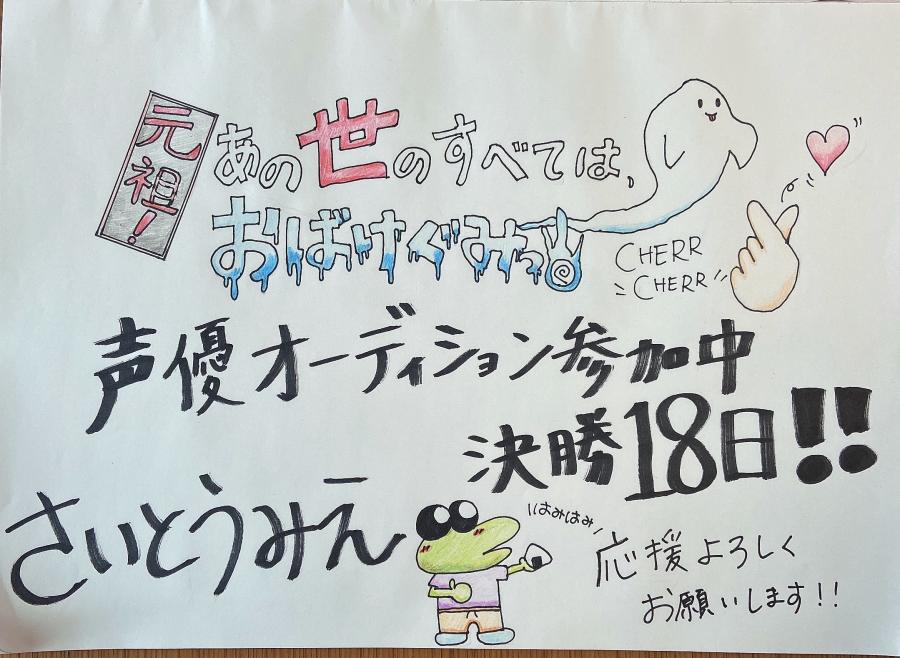 元祖!
あの世のすべては、
おばけぐみっ!
CHERR
CHERR
声優オーディション参加中
決勝18日!!
さいとうみえ
はみはみ
応援よろしく
お願いします!!